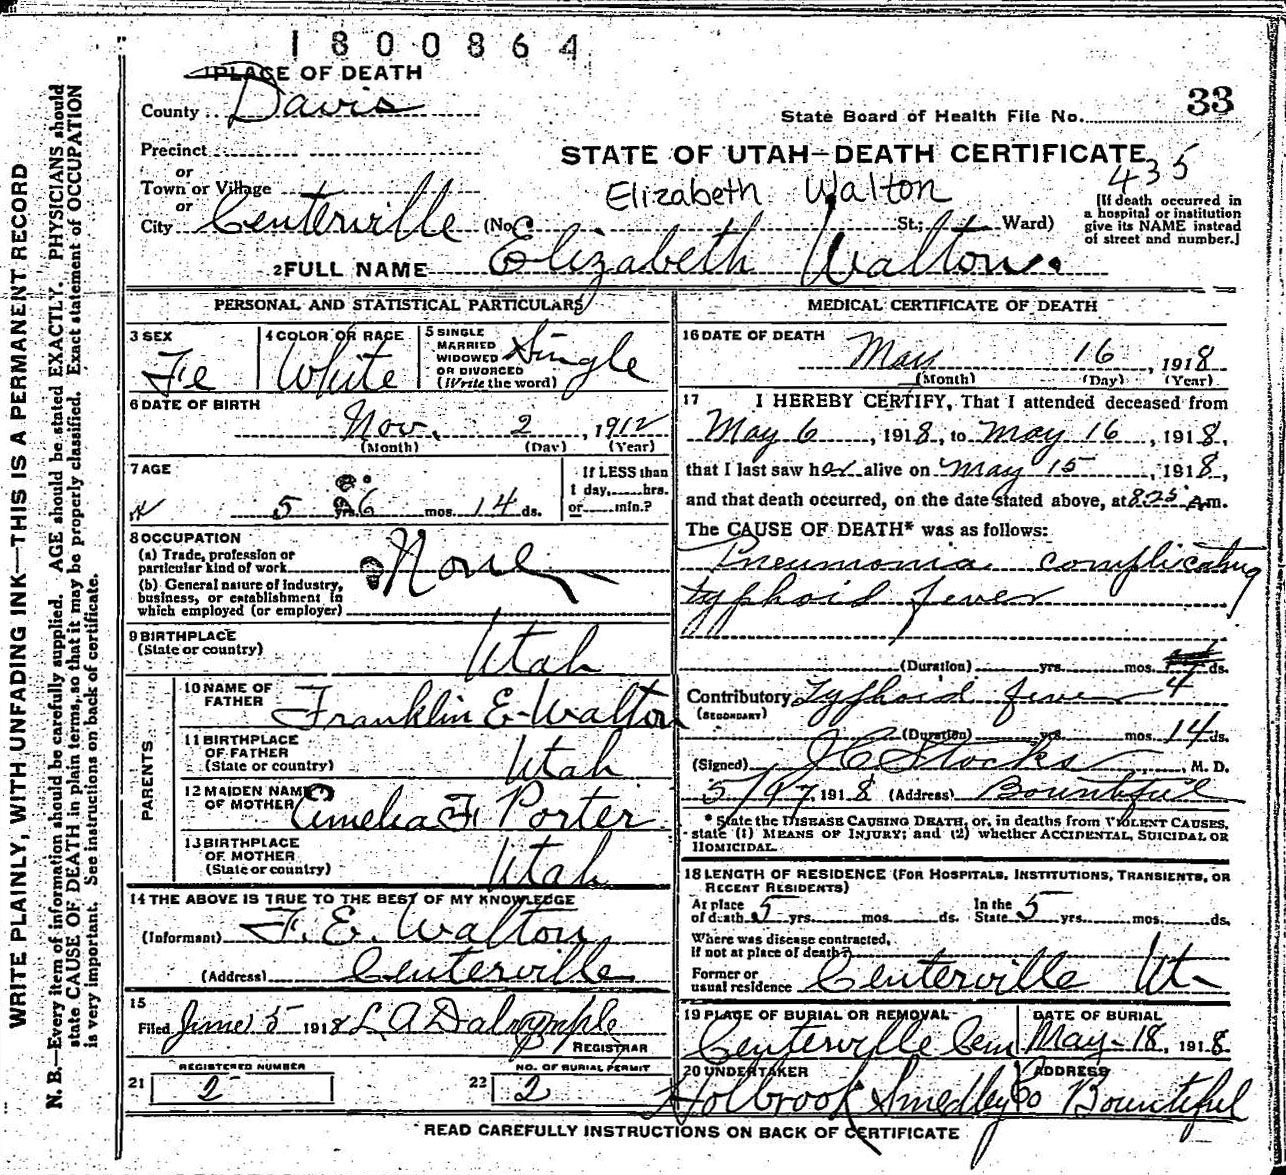 1800864
1 PLACE OF DEATH
County Davis
State Board of Health File No. 33
Precinct
or
Town or Village
or
City Centerville (No. St.; Ward)
STATE OF UTAH—DEATH CERTIFICATE
435
Elizabeth Walton
[If death occurred in
a hospital or institution
give its NAME instead
of street and number.]
2 FULL NAME Elizabeth Walton.
PERSONAL AND STATISTICAL PARTICULARS
3 SEX Fe
4 COLOR OR RACE White
5 SINGLE
MARRIED
WIDOWED
OR DIVORCED
(Write the word) Single
6 DATE OF BIRTH
Nov. 2, 1912
(Month) (Day) (Year)
7 AGE
5 yrs. 6 mos. 14 ds.
If LESS than
1 day,.....hrs.
or.....min.?
8 OCCUPATION
(a) Trade, profession or
particular kind of work None
(b) General nature of industry,
business, or establishment in
which employed (or employer)
9 BIRTHPLACE
(State or country) Utah
PARENTS
10 NAME OF
FATHER Franklin E. Walton
11 BIRTHPLACE
OF FATHER
(State or country) Utah
12 MAIDEN NAME
OF MOTHER Amelia F. Porter
13 BIRTHPLACE
OF MOTHER
(State or country) Utah
14 THE ABOVE IS TRUE TO THE BEST OF MY KNOWLEDGE
(Informant) F. E. Walton
(Address) Centerville
15
Filed June 5 1918 L A Dalrymple
REGISTRAR
REGISTERED NUMBER
21 2
NO. OF BURIAL PERMIT
22 2
MEDICAL CERTIFICATE OF DEATH
16 DATE OF DEATH
May 16, 1918
(Month) (Day) (Year)
17 I HEREBY CERTIFY, That I attended deceased from
May 6, 1918, to May 16, 1918,
that I last saw her alive on May 15, 1918,
and that death occurred, on the date stated above, at 8.25 A m.
The CAUSE OF DEATH* was as follows:
Pneumonia complicating
typhoid fever
(Duration) yrs. mos. 4 ds.
Contributory Typhoid fever
(SECONDARY)
(Duration) yrs. mos. 14 ds.
(Signed) J C Stocks, M. D.
5/17 1918 (Address) Bountiful
* State the DISEASE CAUSING DEATH, or, in deaths from VIOLENT CAUSES,
state (1) MEANS OF INJURY; and (2) whether ACCIDENTAL, SUICIDAL OR
HOMICIDAL.
18 LENGTH OF RESIDENCE (FOR HOSPITALS, INSTITUTIONS, TRANSIENTS, OR
RECENT RESIDENTS)
At place
of death 5 yrs. mos. ds. In the
State 5 yrs. mos. ds.
Where was disease contracted,
if not at place of death?
Former or
usual residence Centerville Ut
19 PLACE OF BURIAL OR REMOVAL
Centerville Cem
DATE OF BURIAL
May 18, 1918
20 UNDERTAKER
Holbrook Smedley Co
ADDRESS
Bountiful
READ CAREFULLY INSTRUCTIONS ON BACK OF CERTIFICATE
WRITE PLAINLY, WITH UNFADING INK—THIS IS A PERMANENT RECORD
N. B.—Every item of information should be carefully supplied. AGE should be stated EXACTLY. PHYSICIANS should
state CAUSE OF DEATH in plain terms, so that it may be properly classified. Exact statement of OCCUPATION
is very important. See instructions on back of certificate.